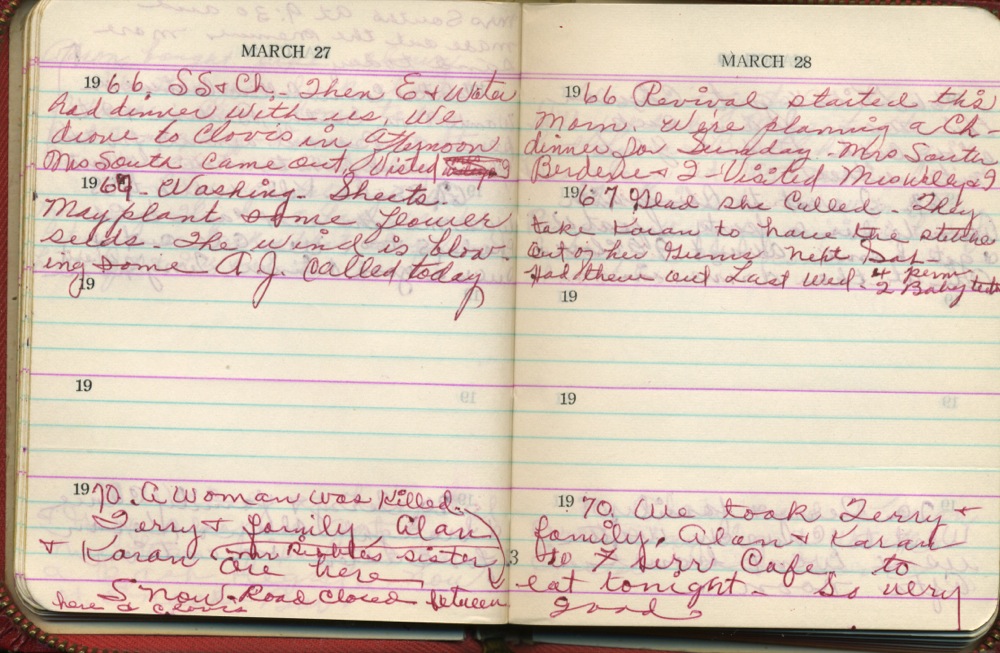 MARCH 27
1966. SS & Ch. Then E &
had dinner with us. We
drove to Clovis in afternoon
Mrs South came out. Visted
1967 - Washing - Sheets -
May plant some flower
seeds - The wind is blow-
ing some A.J. called today
19
19
1970. A Woman was Killed.
Terry & family Alan
& Karan sister
are here
Snow. Road closed between
here & Clovis
MARCH 28
1966 Revival started this
morn. We're planning a Ch-
dinner for Sunday - Mrs South
Berdene & I - Visited Mrs
1967 Glad she called - They
take Karan to have the stitches
out of her Gums next Sat-
Had them out Last Wed. 4 perm
2 Baby teeth
19
19
1970. We took Terry &
family. Alan & Karan
3
to Z Cafe to
eat tonight - So very
good